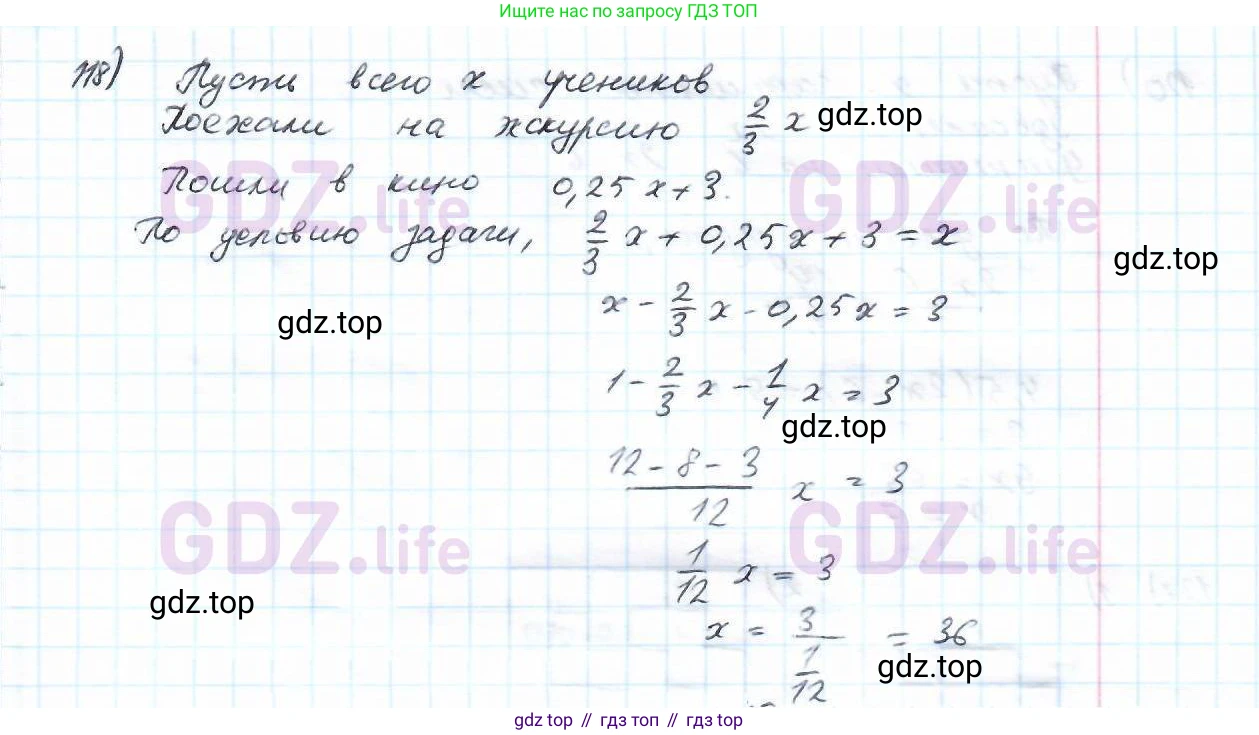 Ищите нас по запросу ГДЗ ТОП
118) Пусть всего x учеников
Поехали на экскурсию 2/3 x gdz.top
Пошли в кино 0,25x+3.
GDZ.life GDZ.life
По условию задачи, 2/3 x + 0,25x + 3 = x
gdz.top
x - 2/3 x - 0,25x = 3
gdz.top
1 - 2/3 x - 1/4 x = 3
gdz.top
(12 - 8 - 3)/12 x = 3
GDZ.life GDZ.life
1/12 x = 3
gdz.top
x = 3/(1/12) = 36
gdz.top
gdz.top // гдз топ // gdz.top